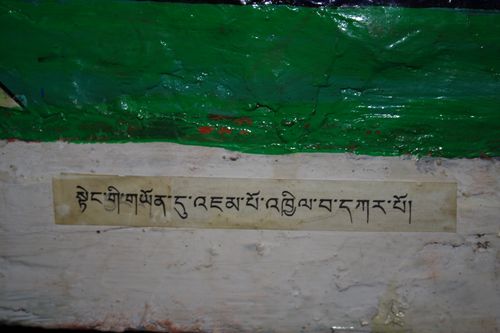 སྟེང་གི་གཡོན་དུ་འཇམ་པོ་འཁྱིལ་བ་དཀར་པོ།